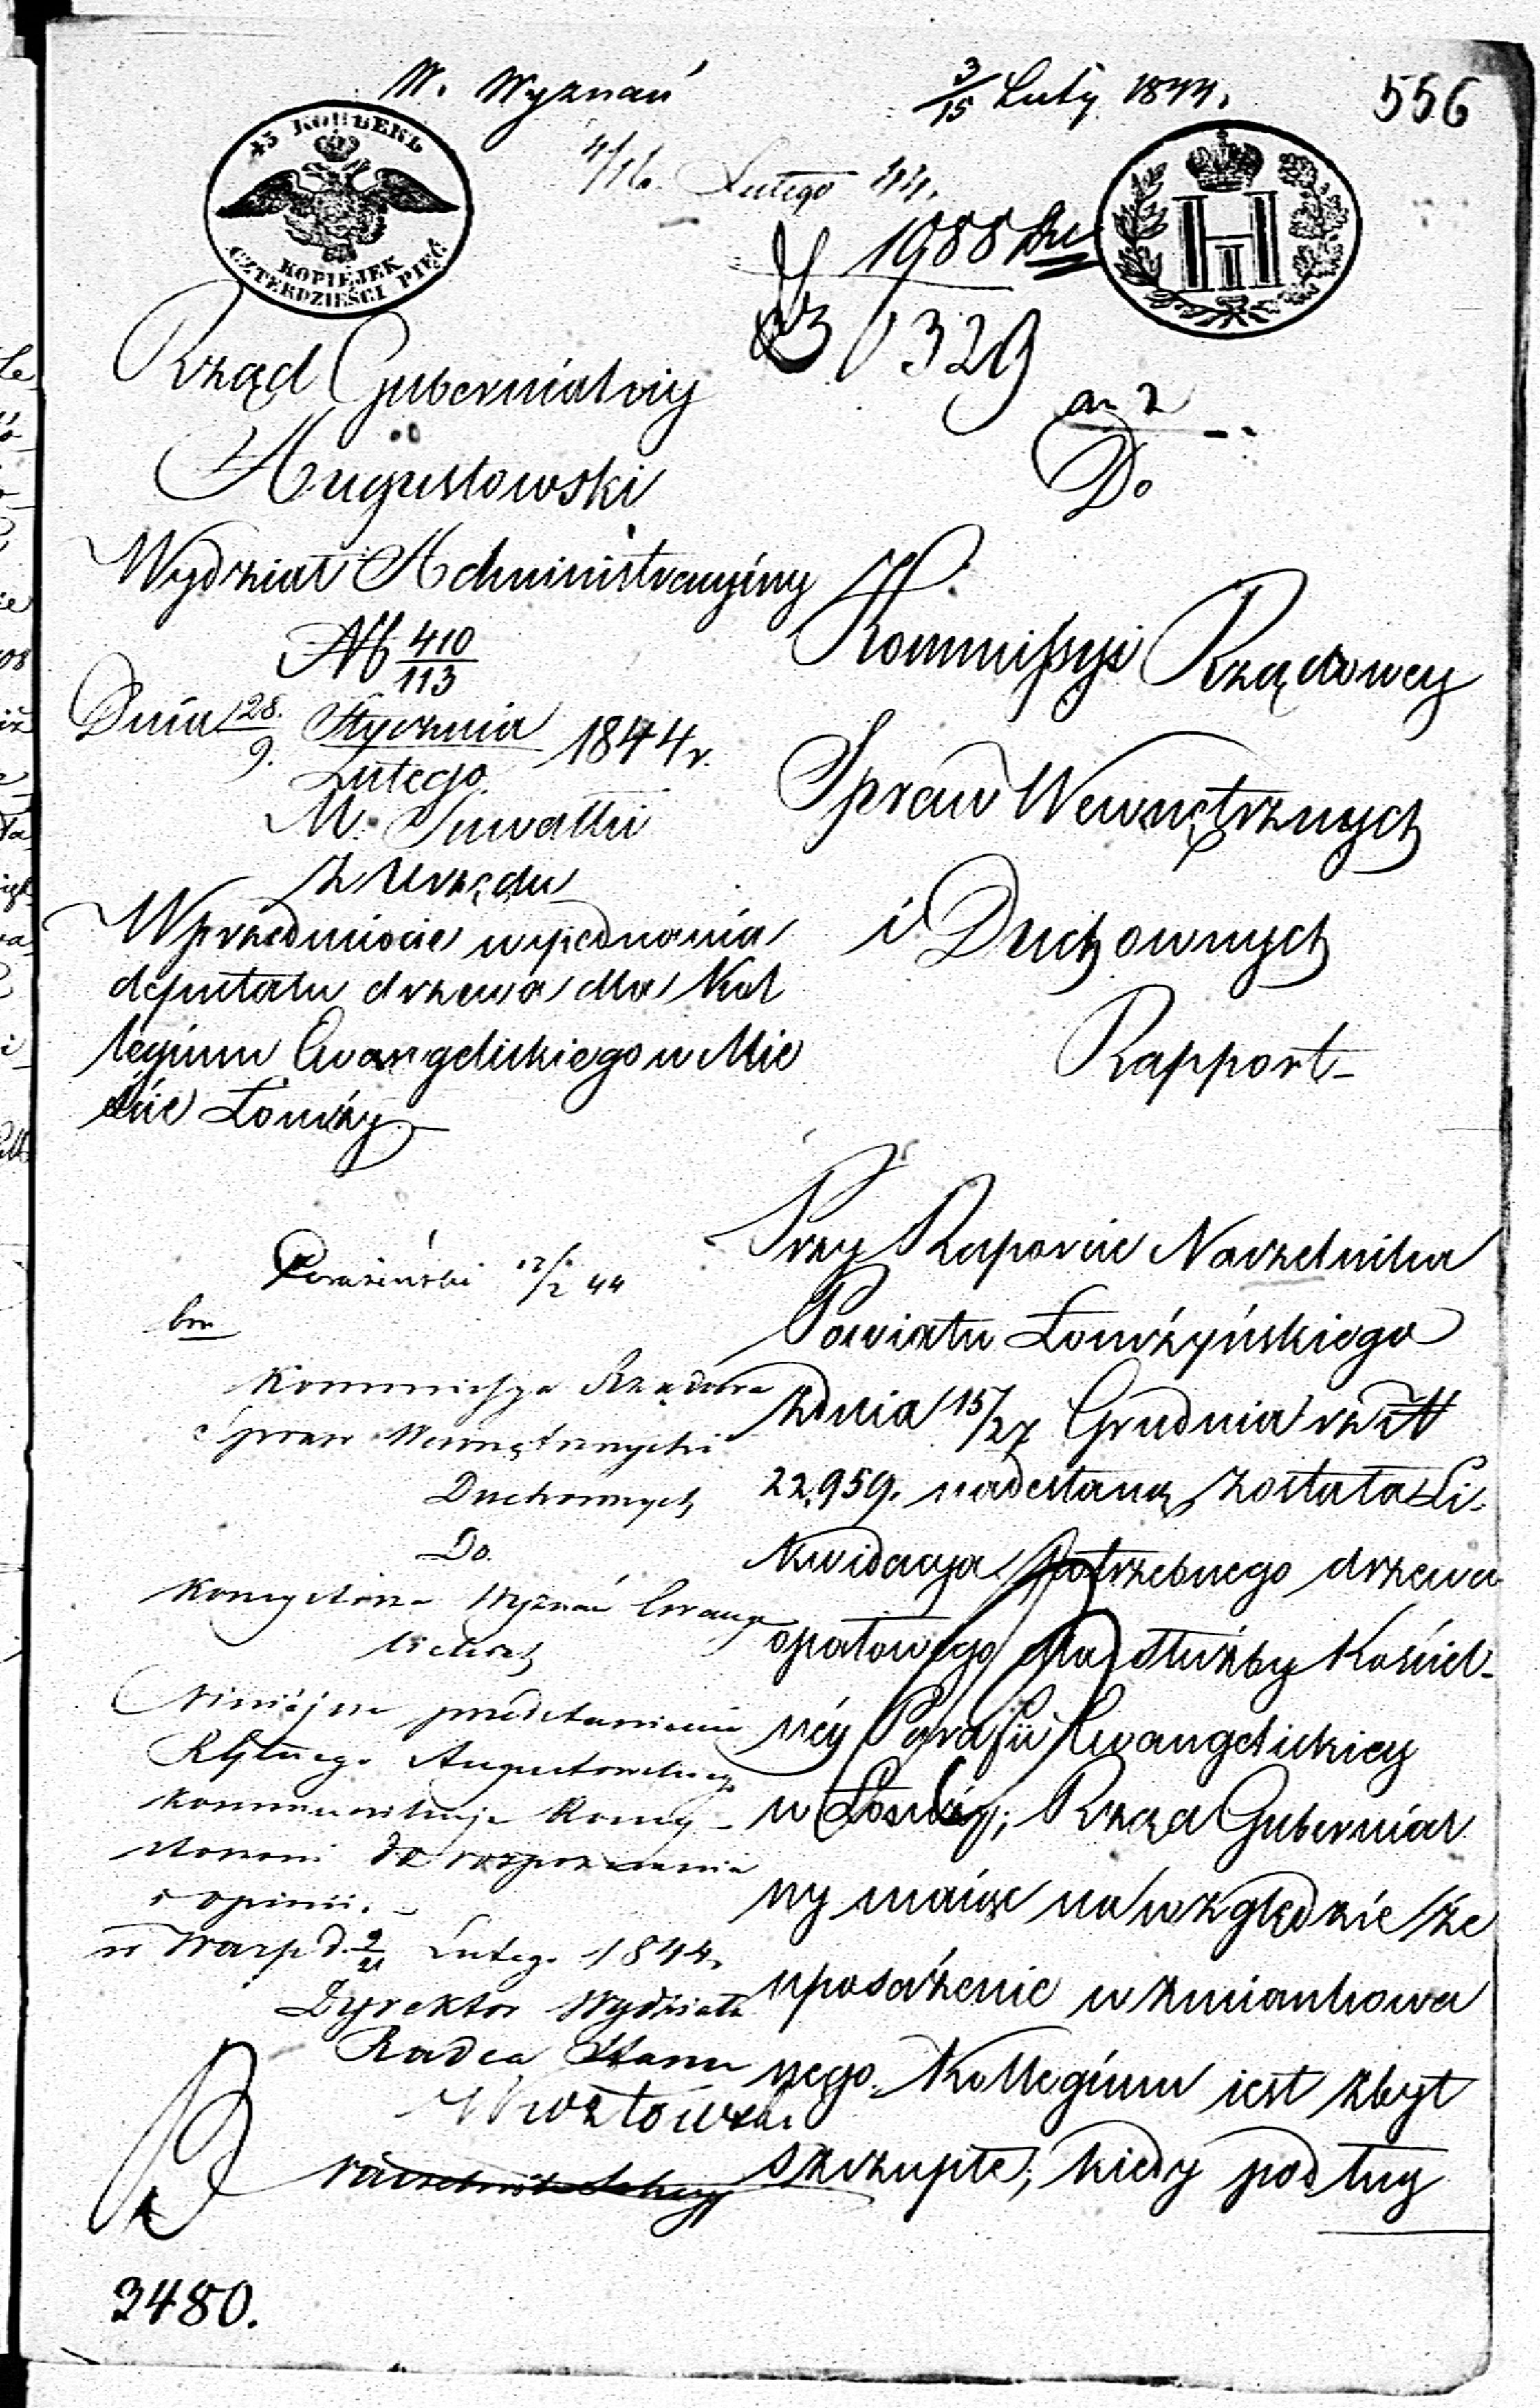 W. Wyznań
3/15 Luty 1844.
556
4/16. Lutego 44.
45 КОПѢЕКЪ
KOPIEJEK
CZTERDZIEŚCI PIĘĆ
1988
1329
Rząd Gubernialny
Augustowski
Wydział Administracyiny
№ 410/113
Dnia 28. Stycznia / 9. Lutego 1844 r.
M. Suwałki
z Urzędu
W przedmiocie wyjednania
deputatu drzewa dla Kol
legium Ewangelickiego w Mie
ście Łomży
Do
Kommissyi Rządowey
Spraw Wewnętrznych
i Duchownych
Rapport
Przy Raporcie Naczelnika
Powiatu Łomżyńskiego
z dnia 15/27 Grudnia r z №
22,959. nadesłaną została Li-
kwidacya potrzebnego drzewa
opałowego dla służby Kościel-
néy Parafii Ewangelickiey
w Łomży; Rząd Gubernial
ny maiąc na względzie że
uposażenie wzmiankowa
nego Kollegium iest zbyt
szczupłe, kiedy podług
12/2 44
Kommissya Rządowa
Spraw Wewnętrznych i
Duchownych
Do
Konsystorza Wyznań Ewang
lickich
Niniéjsze przedstawienie
Rządu Gubernialnego Augustowskiego
kommunikuje Konsy-
storzowi do rozpoznania
i opinii.
w Warsz d. 9/21 Lutego 1844.
Dyrektor Wydziału
Radca Stanu
3480.